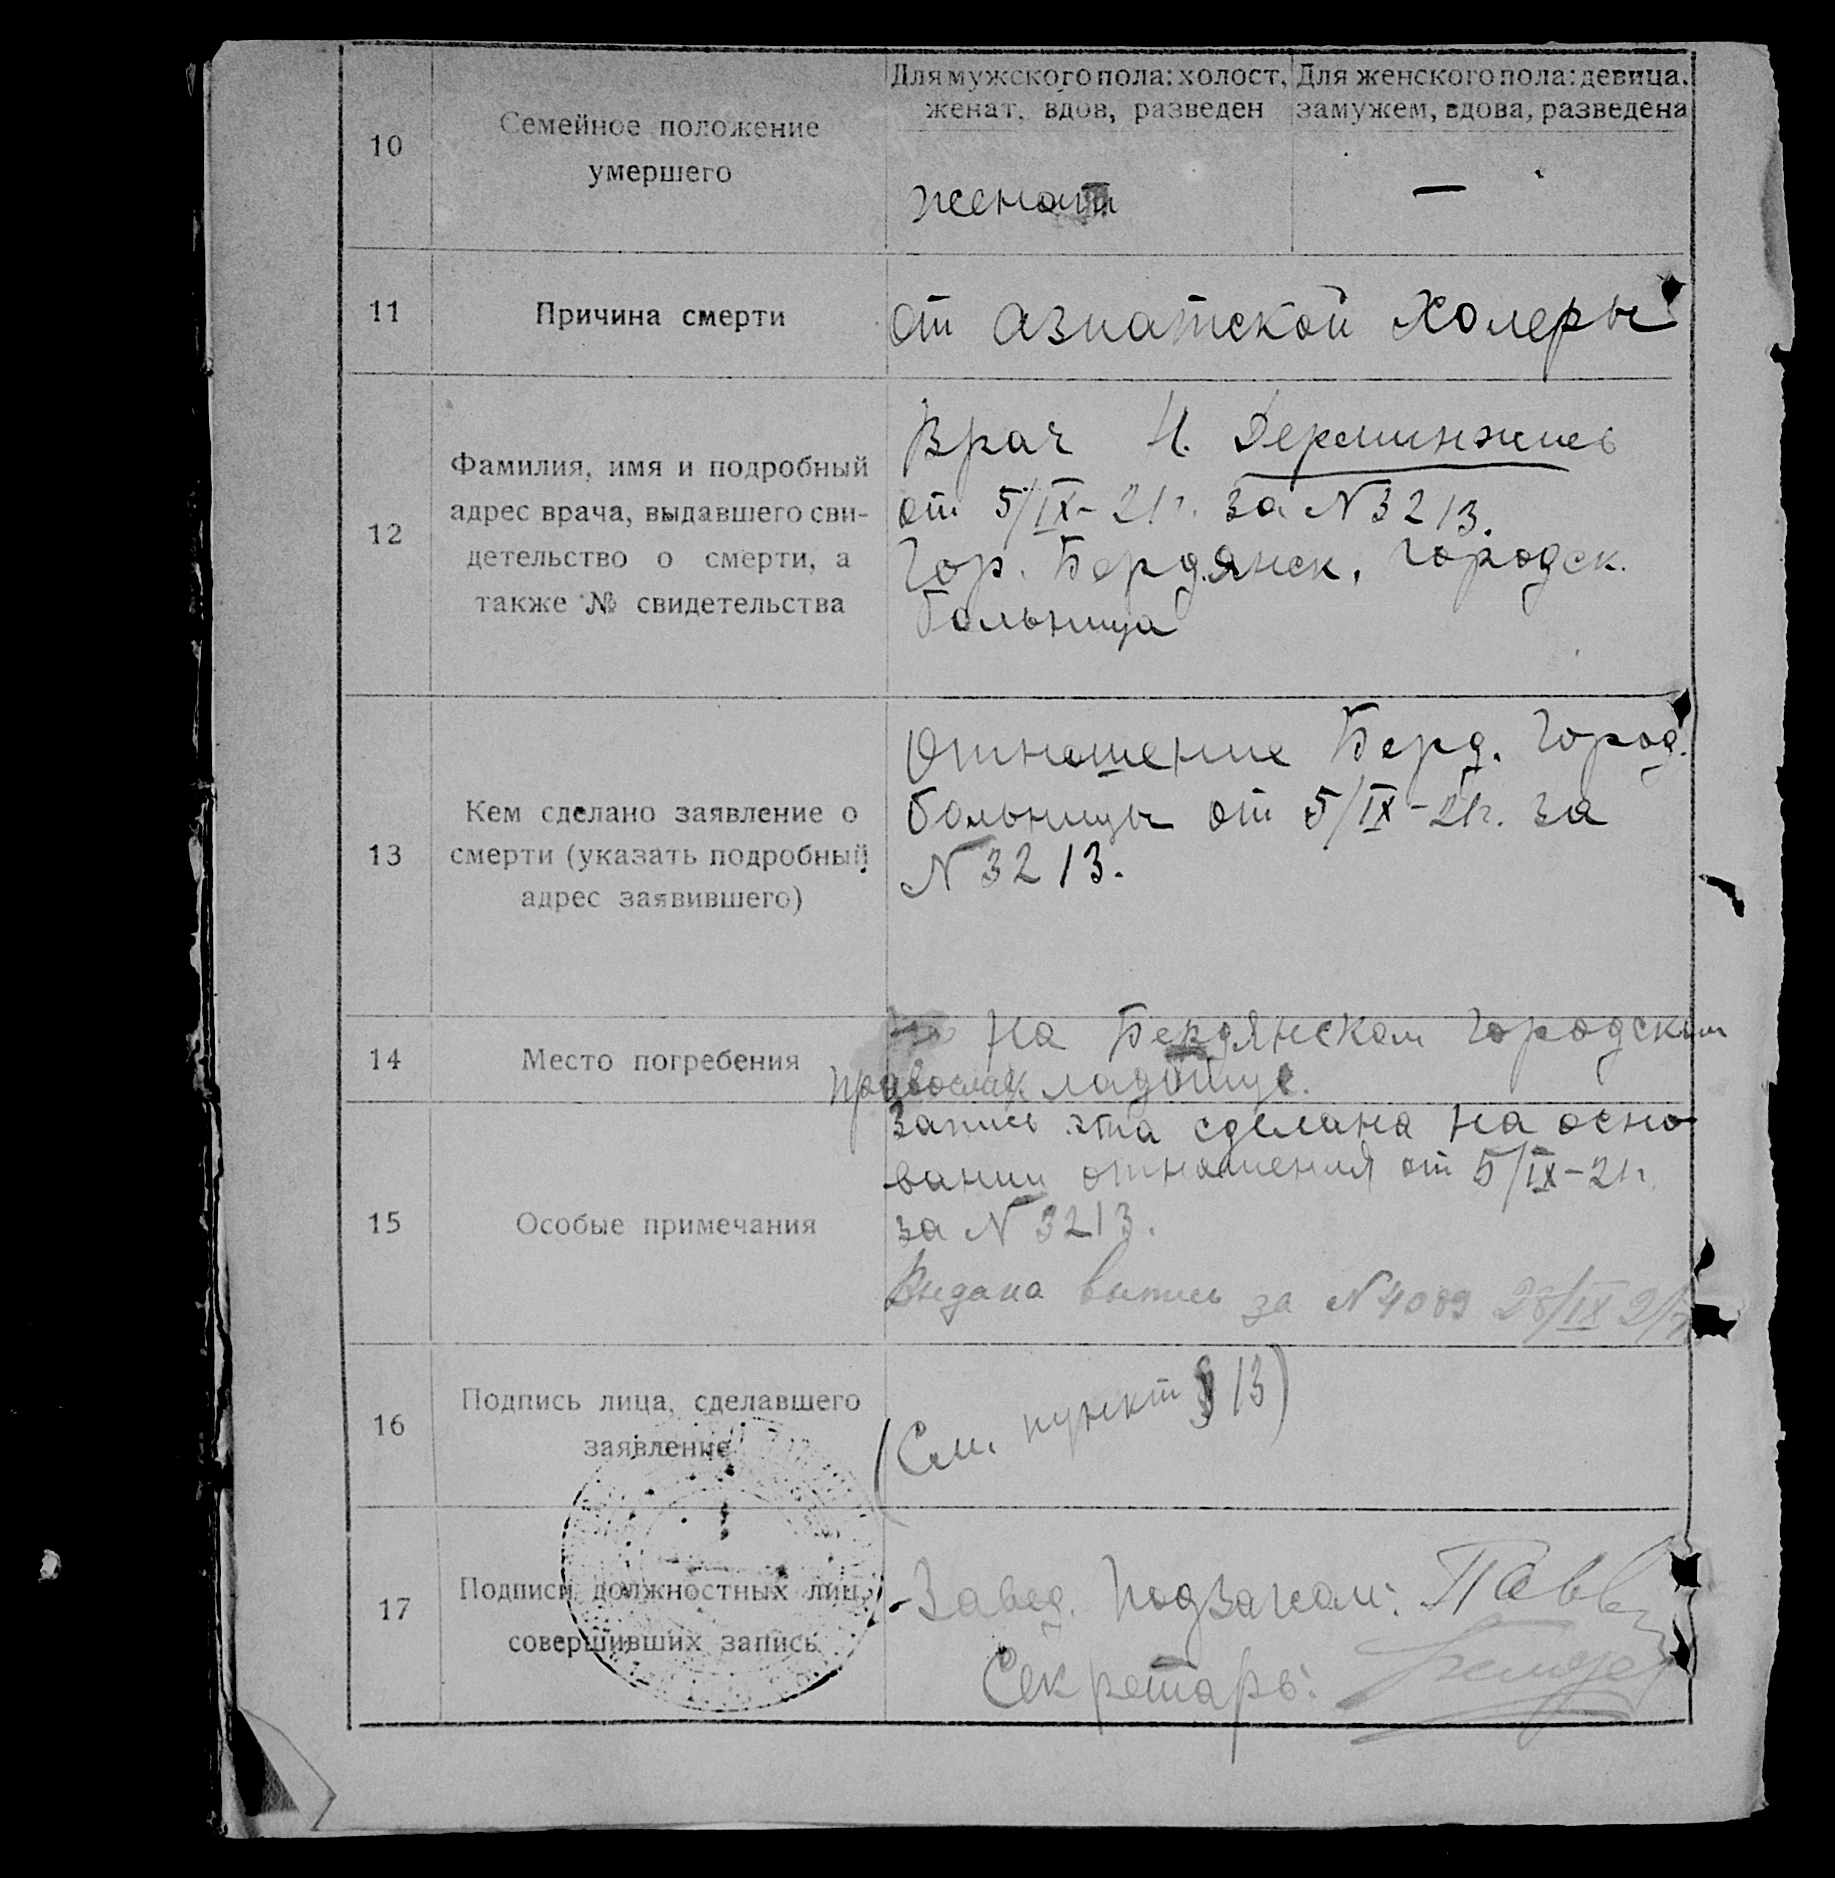 10
Семейное положение
умершего
Для мужского пола: холост,
женат, вдов, разведен
Для женского пола: девица,
замужем, вдова, разведена
женат
—
11
Причина смерти
от азиатской холеры
12
Фамилия, имя и подробный
адрес врача, выдавшего сви-
детельство о смерти, а
также № свидетельства
Врач
от 5/IX-21г. за N 3213.
Гор. Бердянск, Городск.
больница
13
Кем сделано заявление о
смерти (указать подробный
адрес заявившего)
Отношение Берд. Город.
больницы от 5/IX-21г. за
N 3213.
14
Место погребения
На Бердянском городском
правосл. кладбище.
15
Особые примечания
Запись эта сделана на осно-
вании отношения от 5/IX-21г.
за N 3213.
Выдана выпись за N 4089 28/IX 21г
16
Подпись лица, сделавшего
заявление
(См. пункт § 13)
17
Подписи должностных лиц,
совершивших запись
Завед. Подзагсом:
Секретарь: